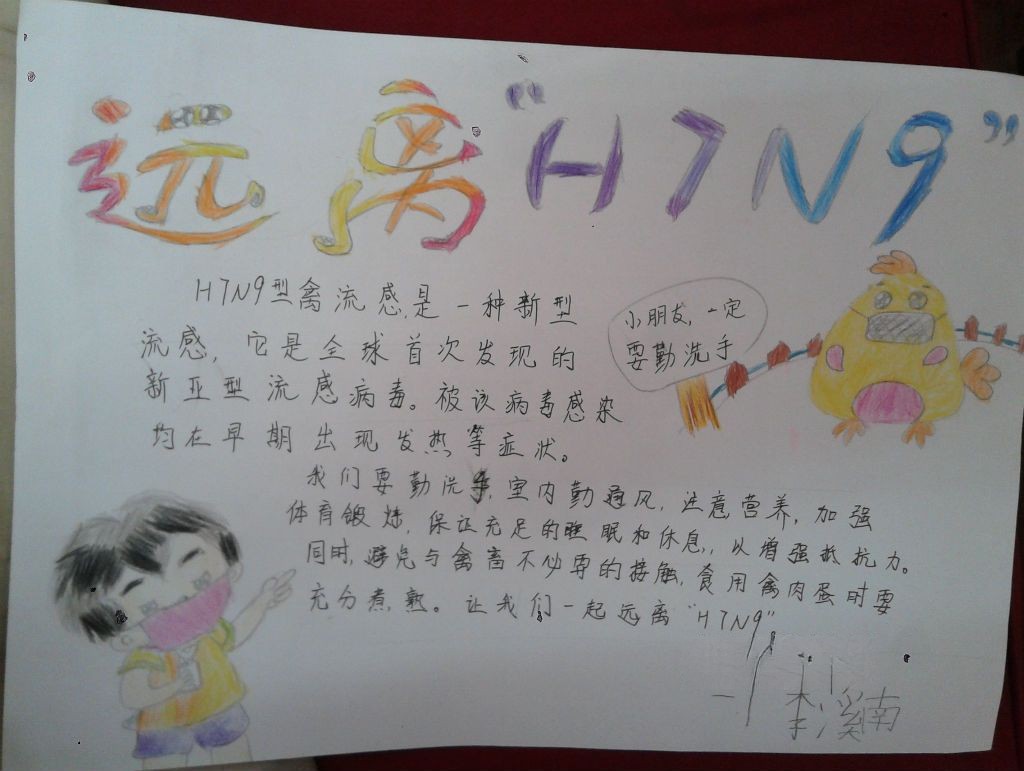 远离“H7N9”
H7N9型禽流感是一种新型
流感，它是全球首次发现的
新亚型流感病毒。被该病毒感染
均在早期出现发热等症状。
小朋友，一定
要勤洗手
我们要勤洗手，室内勤通风，注意营养，加强
体育锻炼，保证充足的睡眠和休息，以增强抵抗力。
同时，避免与禽畜不必要的接触，食用禽肉蛋时要
充分煮，熟。让我们一起远离“H7N9”
李溪南